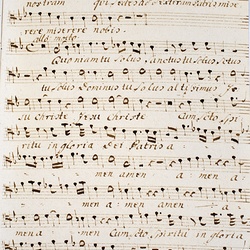 nostram qui sedes ad dexteram Patris mise
rere miserere nobis.
Quoniam tu solus sanctus tu solus tu
tu solus Dominus tu solus altissimus Je
su Christe Jesu Christe Cum Sto Spi
ritu in gloria Dei Patris a
men amen a men a
men a men amen a
mena men Cum Sto Spiritu in gloria